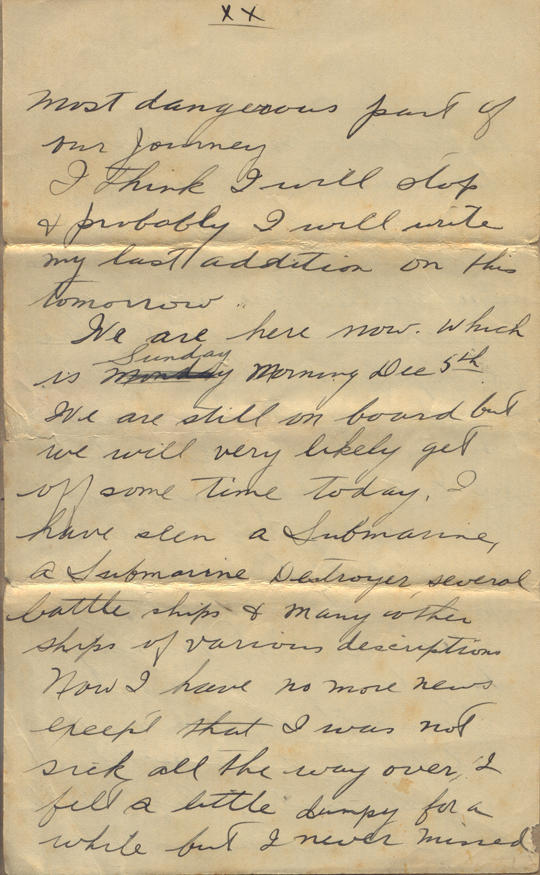 XX
most dangerous part of
our Journey
I think I will stop
& probably I will write
my last addition on this
tomorrow.
We are here now. Which
Sunday
is Monday Morning Dec 5th.
We are still on board but
we will very likely get
off some time today. I
have seen a Submarine,
a Submarine Destroyer several
battle ships & many other
ships of various descriptions
Now I have no more news
except that I was not
sick all the way over, I
felt a little dumpy for a
while but I never missed